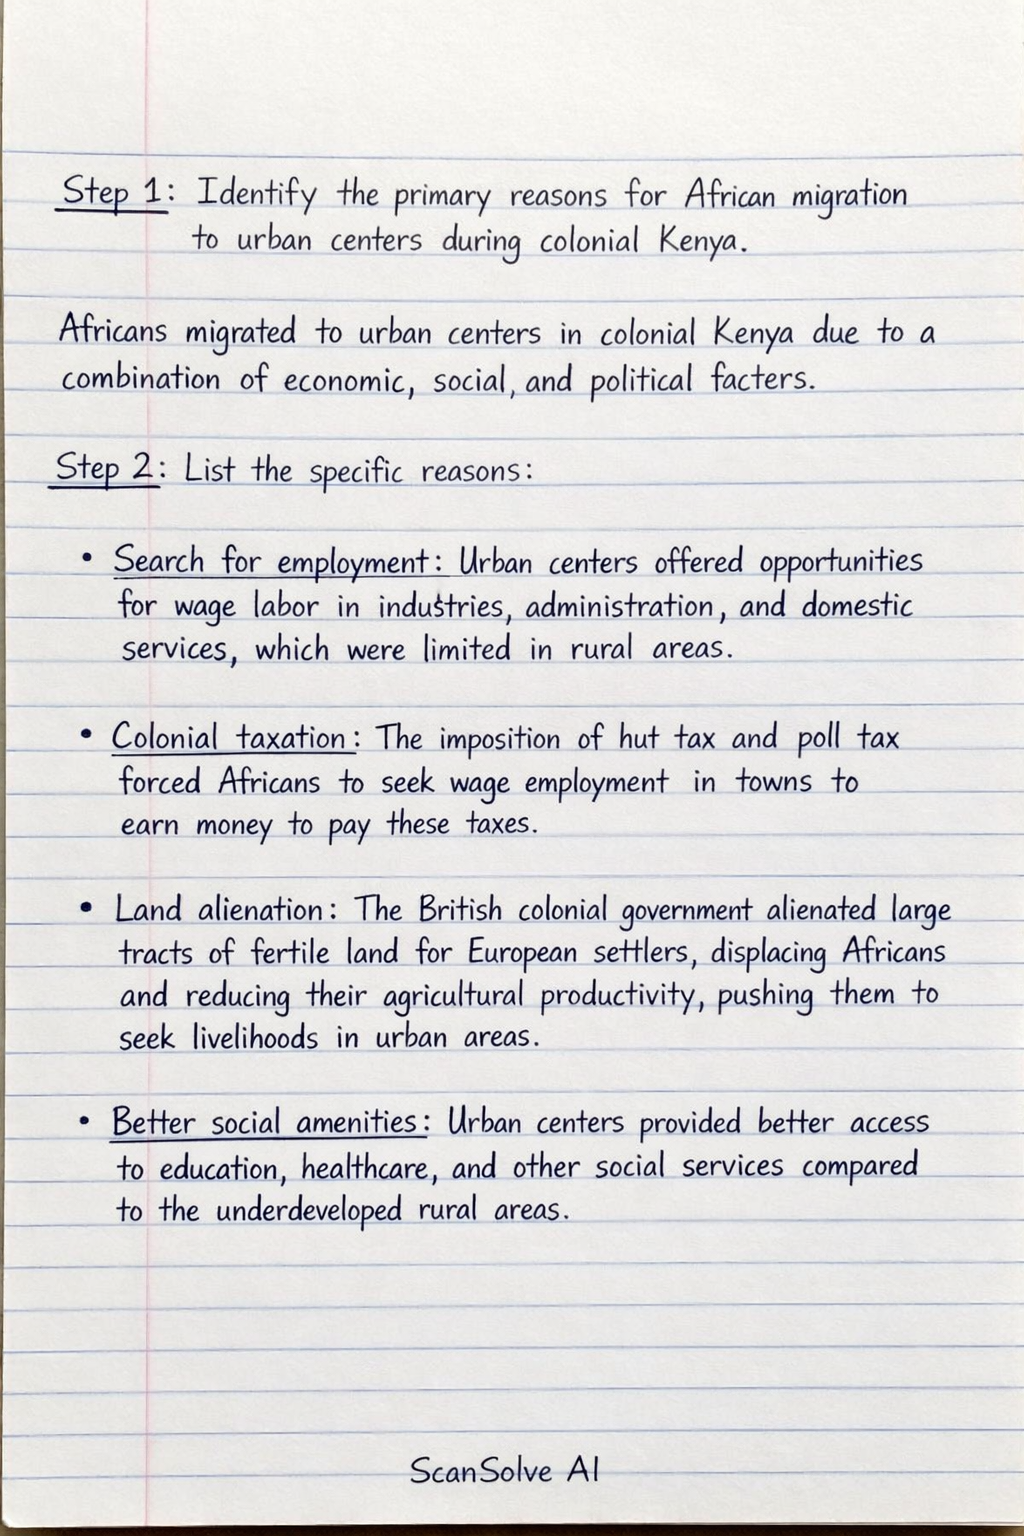 Step 1: Identify the primary reasons for African migration
to urban centers during colonial Kenya.
Africans migrated to urban centers in colonial Kenya due to a
combination of economic, social, and political facters.
Step 2: List the specific reasons:
• Search for employment: Urban centers offered opportunities
for wage labor in industries, administration, and domestic
services, which were limited in rural areas.
• Colonial taxation: The imposition of hut tax and poll tax
forced Africans to seek wage employment in towns to
earn money to pay these taxes.
• Land alienation: The British colonial government alienated large
tracts of fertile land for European settlers, displacing Africans
and reducing their agricultural productivity, pushing them to
seek livelihoods in urban areas.
• Better social amenities: Urban centers provided better access
to education, healthcare, and other social services compared
to the underdeveloped rural areas.
ScanSolve AI